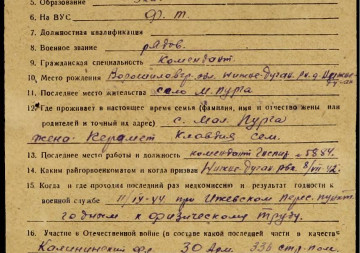 5. Образование
6. На ВУС ф. т.
7. Должностная квалификация
8. Военное звание рядов.
9. Гражданская специальность комендант.
10. Место рождения Ворошиловгр. обл. Нижне-Дуван. р-н, д. Нижне-
11. Последнее место жительства село М. Пурга
12. Где проживает в настоящее время семья (фамилия, имя и отчество жены или
родителей и точный их адрес) с. Мал. Пурга
жена- Клавдия Сем.
13. Последнее место работы и должность комендант Госпит. №5884.
14. Каким райгорвоенкоматом и когда призван Нижне-Дуван. РВК
15. Когда и где проходил последний раз медкомиссию и результат годности к
военной службе 11/IV-44. при Ижевском перес. пункт.
годным к физическому труду.
16. Участие в Отечественной войне (в составе какой последней части и в качестве
Калининский фр. 30 Арм. 336 стр. пол.